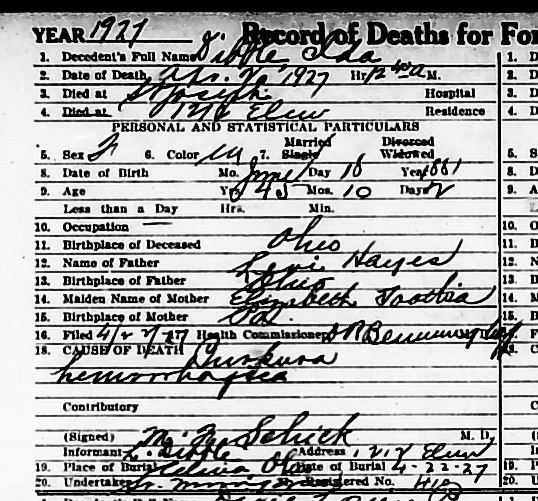 YEAR 1927 Record of Deaths for For
1. Decedent's Full Name Ida
2. Date of Death, Apr. 20, 1927 Hr. 12 40 a M.
3. Died at St Joseph Hospital
4. Died at 1212 Elm Residence
PERSONAL AND STATISTICAL PARTICULARS
5. Sex F 6. Color W 7. Married Single Divorced Widowed
8. Date of Birth Mo. June Day 18 Year 1881
9. Age Yrs. 45 Mos. 10 Days 2
Less than a Day Hrs. Min.
10. Occupation —
11. Birthplace of Deceased Ohio
12. Name of Father Levi Hayes
13. Birthplace of Father Ohio
14. Maiden Name of Mother Elizabeth
15. Birthplace of Mother
16. Filed 4/27/27 Health Commissioner
18. CAUSE OF DEATH Purpura
hemorrhagica
Contributory
(Signed) M. F. Schick M. D.
Informant L. Address 1212 Elm
19. Place of Burial Ohio Date of Burial 4-22-27
20. Undertaker Registered No.